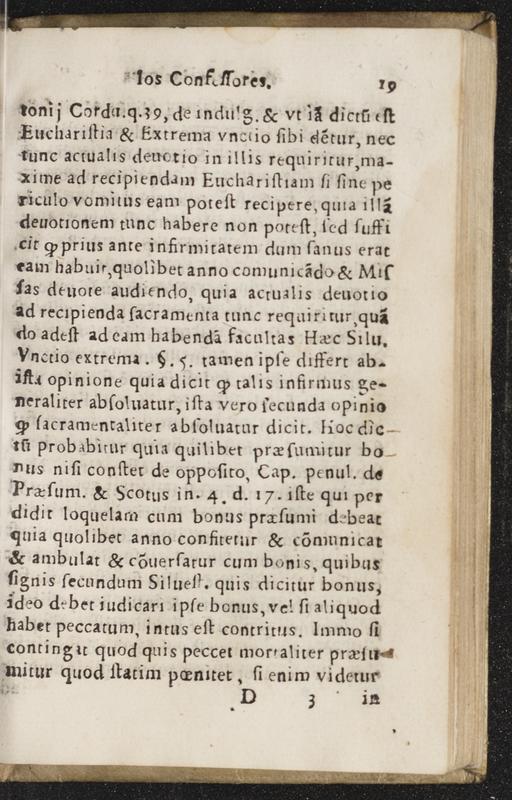 los Confessores. 19
tonij Cordu.q.39, de indulg. & vt iã dictũ est
Eucharistia & Extrema vnctio sibi dẽtur, nec
tunc actualis deuotio in illis requiritur, ma-
xime ad recipiendam Eucharistiam si sine pe
riculo vomitus eam potest recipere, quia illã
deuotionem tunc habere non potest, sed suffi
cit ꝙ prius ante infirmitatem dum sanus erat
eam habuit, quolibet anno comunicãdo & Mis
sas deuote audiendo, quia actualis deuotio
ad recipienda sacramenta tunc requiritur, quã
do adest ad eam habendã facultas Hæc Silu.
Vnctio extrema. §. 5. tamen ipse differt ab-
ista opinione quia dicit ꝙ talis infirmus ge-
neraliter absoluatur, ista vero secunda opinio
ꝙ sacramentaliter absoluatur dicit. Hoc dic-
tũ probabitur quia quilibet præsumitur bo-
nus nisi constet de opposito, Cap. penul. de
Præsum. & Scotus in. 4. d. 17. iste qui per
didit loquelam cum bonus præsumi debeat
quia quolibet anno confitetur & cõmunicat
& ambulat & cõuersatur cum bonis, quibus
signis secundum Siluest. quis dicitur bonus,
ideo debet iudicari ipse bonus, vel si aliquod
habet peccatum, intus est contritus. Immo si
contingat quod quis peccet mortaliter præsu-
mitur quod statim pœnitet, si enim videtur
D 3 in